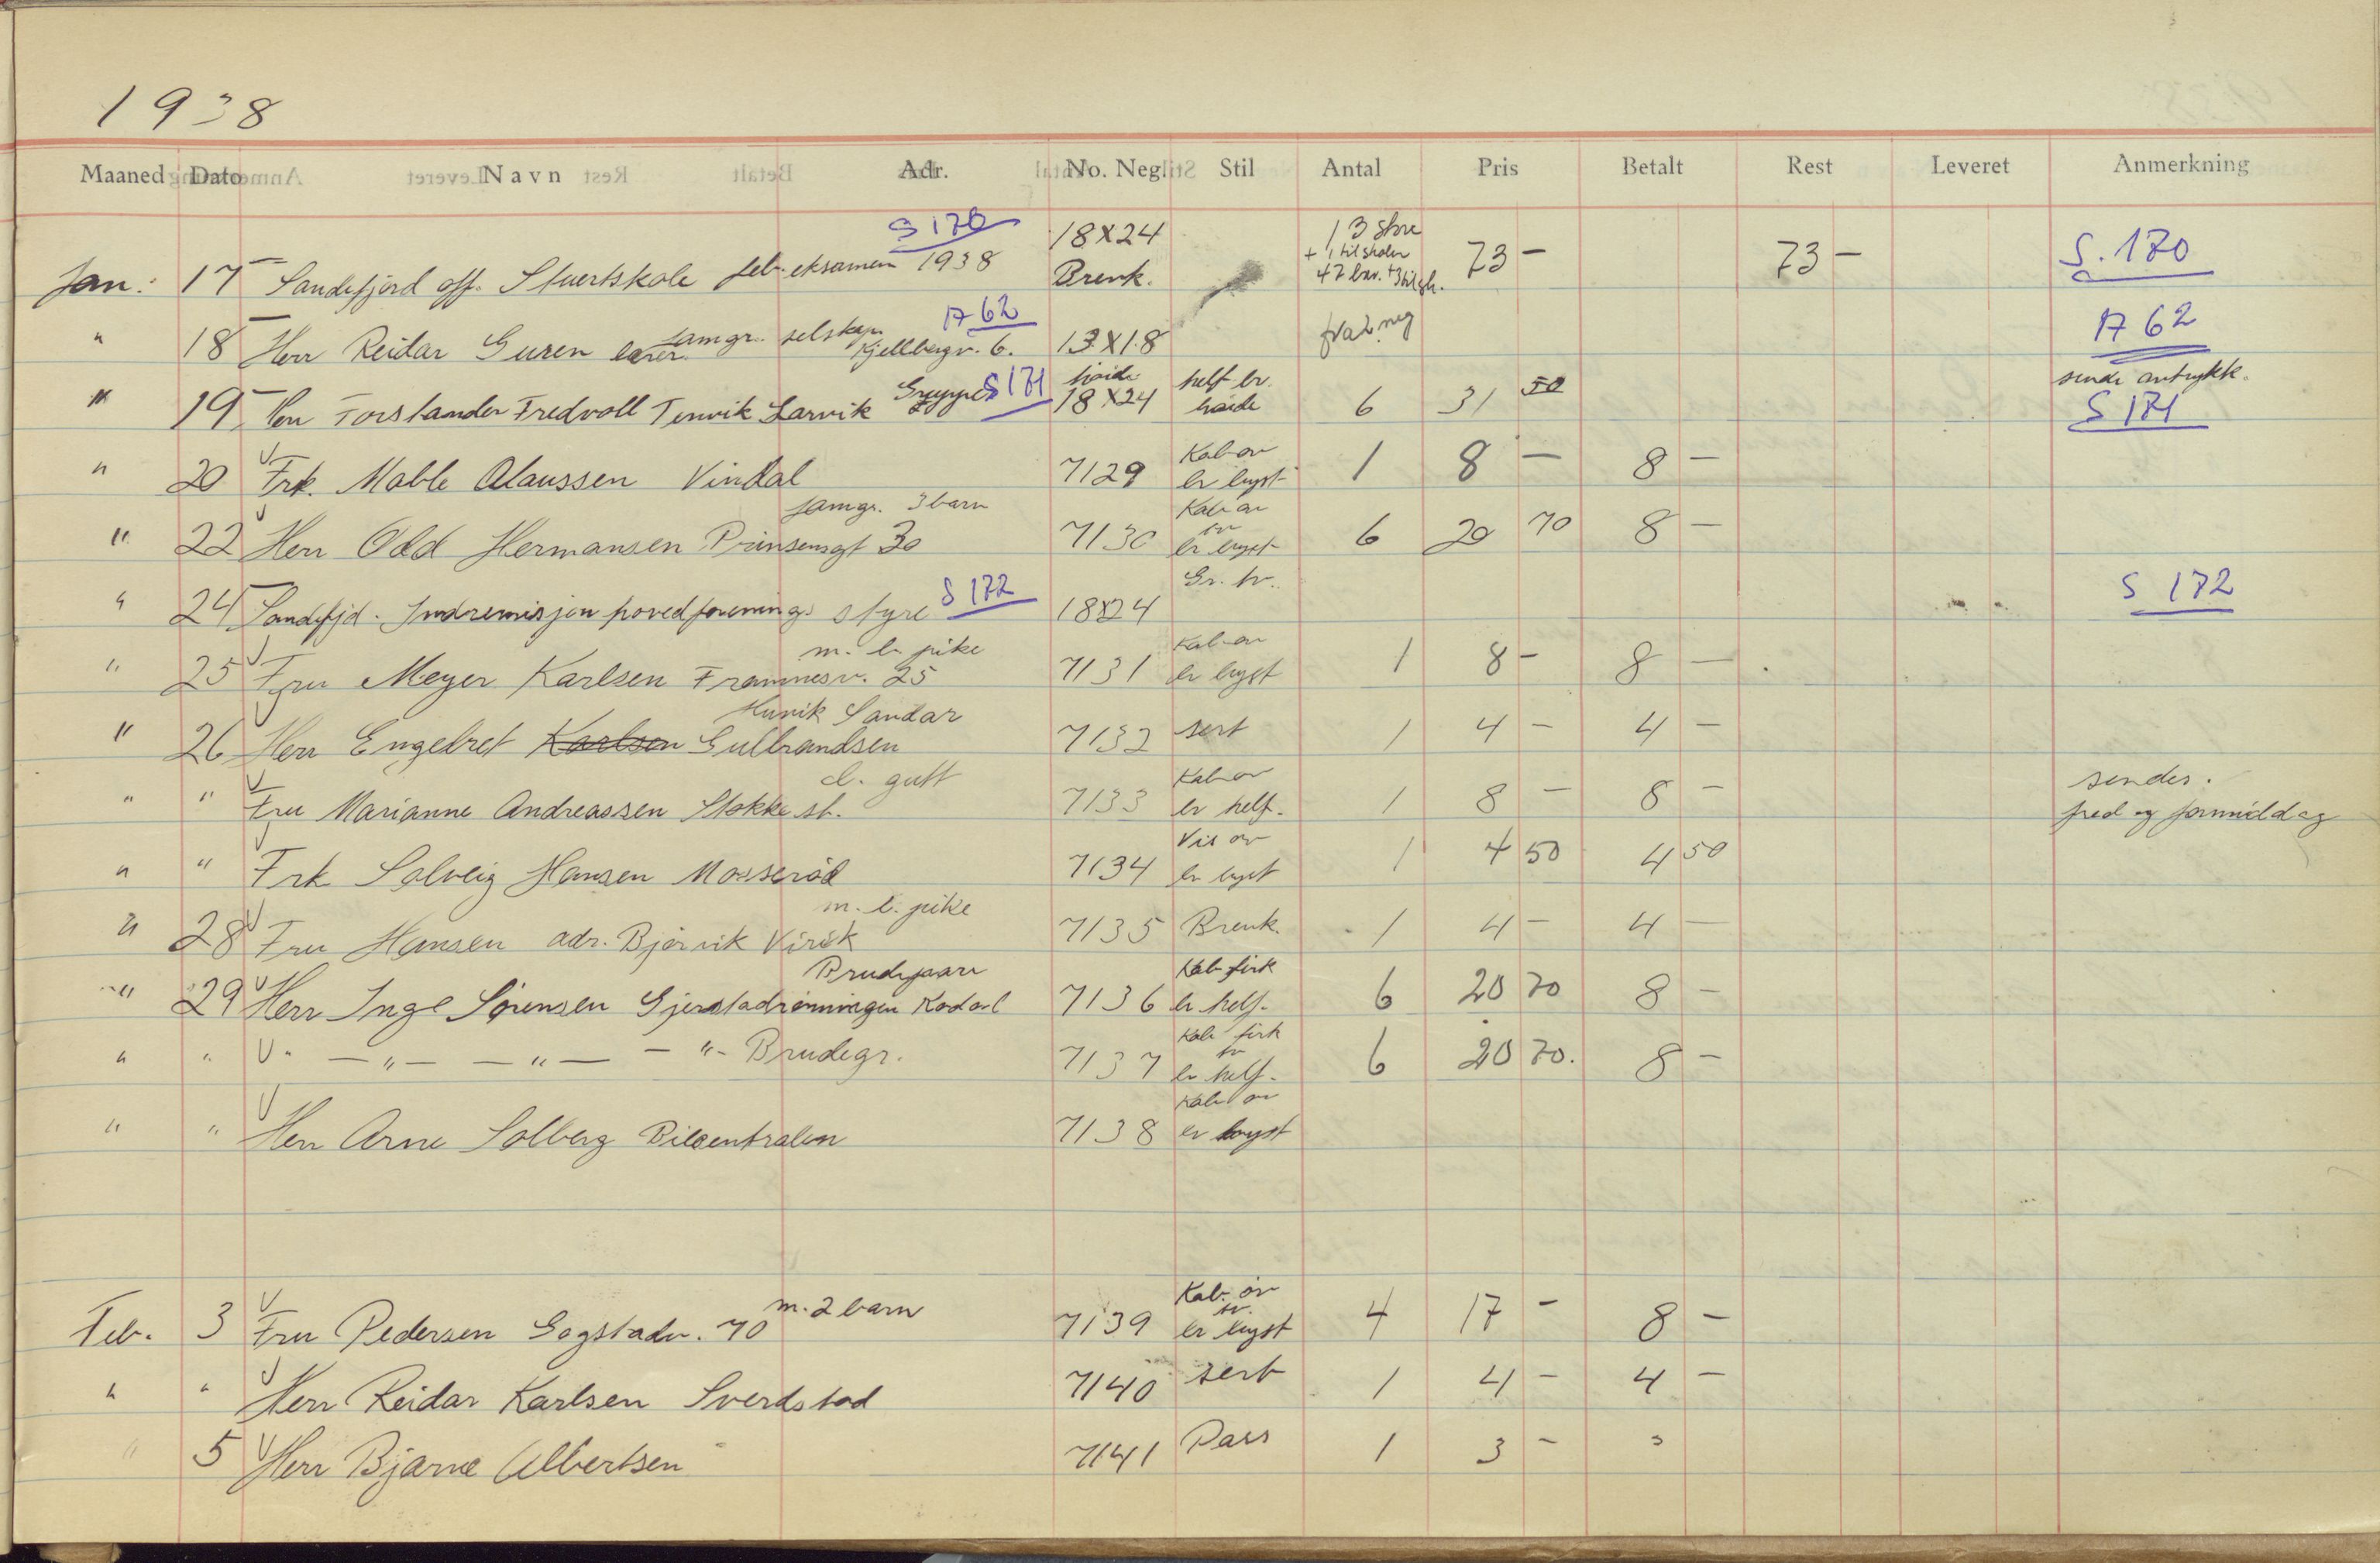 1938
Maaned Dato Navn Adr. No. Negl. Stil Antal Pris Betalt Rest Leveret Anmerkning
S 170 18X24 13 store
Jan. 17 Sandefjord off. Stuertskole feb. eksamen 1938 Brenk. + 1 til skolen 73 – 73 – S. 170
A 62
" 18 Herr Reidar Guren famgr. selskap Kjellbergv. 6. 13X18 fra 2 neg A 62
sende avtrykk.
" 19 Herr Forstander Fredvoll Tenvik Larvik Gruppe S 171 18X24 helf br. 6 31 50 S 171
Kab ov
" 20 Frk. Mable Olaussen Vindal 7129 br bryst 1 8 – 8 –
famgr. 3 barn Kab ov
" 22 Herr Odd Hermansen Prinsensgt 30 7130 br bryst 6 20 70 8 –
Gr. br.
" 24 Sandefjd. Indremisjon hovedforenings styre S 172 18X24 S 172
m. l. pike Kab ov
" 25 Fru Meyer Karlsen Framnesv. 25 7131 br bryst 1 8 – 8 –
Sandar
" 26 Herr Engebret Karlsen Gulbrandsen 7132 sert 1 4 – 4 –
l. gutt Kab ov sendes.
" " Fru Marianne Andreassen Stokke st. 7133 br helf. 1 8 – 8 – fred og formiddag
Vis ov
" " Frk Solveig Hansen Mosserød 7134 br bryst 1 4 50 4 50
m. l. pike
" 28 Fru Hansen adr. Bjørvik Virik 7135 Brenk. 1 4 – 4 –
Brudepaar Kab firk
" 29 Herr Inge Sørensen Gjerstadrønningen Kodal 7136 br helf. 6 20 70 8 –
Kab firk
" " " – " – – " – – " – Brudegr. 7137 br helf. 6 20 70. 8 –
Kab ov
" " Herr Arne Solberg Bilcentralen 7138 br bryst
m. 2 barn Kab. ov
Feb. 3 Fru Pedersen Gogstadv. 70 7139 br bryst 4 17 – 8 –
" " Herr Reidar Karlsen Sverdstad 7140 sert 1 4 – 4 –
" 5 Herr Bjarne Albertsen 7141 Pass 1 3 – 3